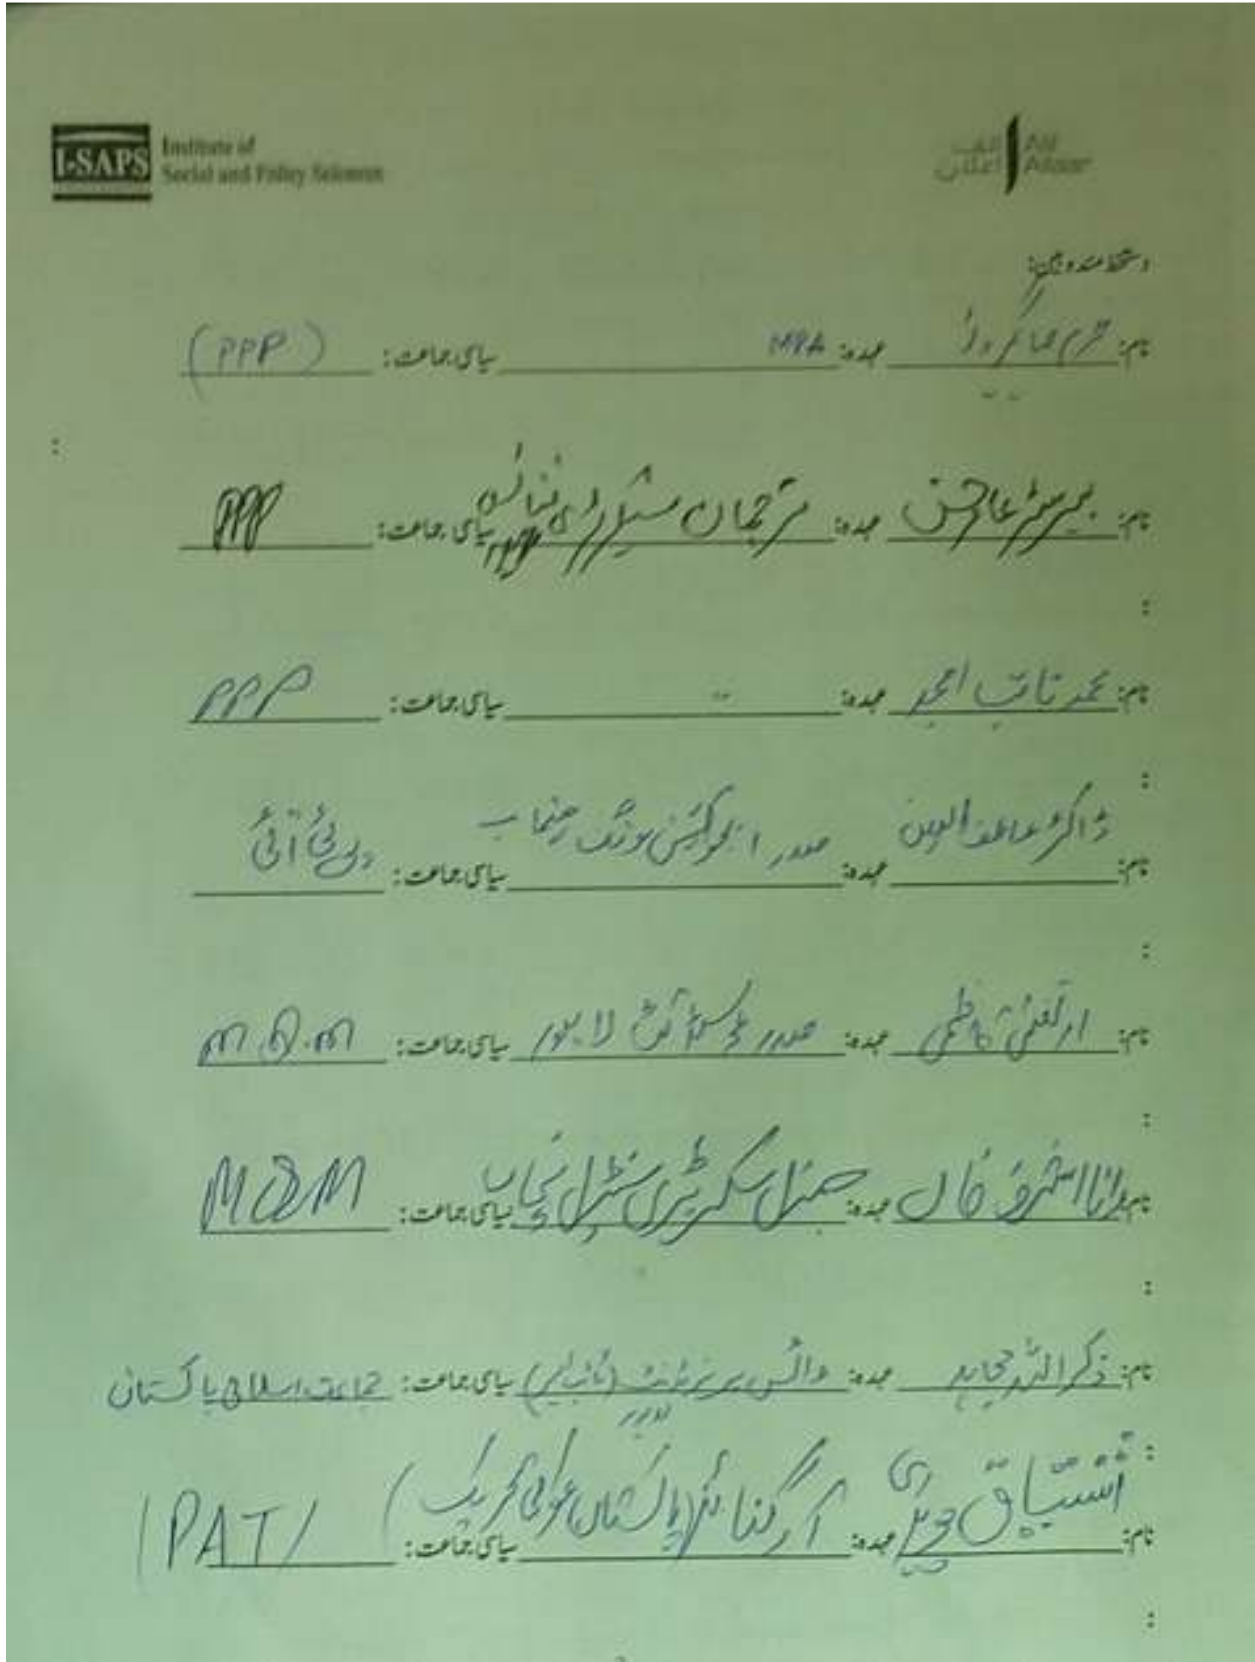 I-SAPS
Institute of
Social and Policy Sciences
الف
اعلان
Alif
Ailaan
دستخط مندوبین:
نام: خرم عہدہ: MPA سیاسی جماعت: (PPP)
:
نام: بیرسٹر عامر حسن عہدہ: ترجمان سیاسی جماعت: PPP
:
نام: محمد ثاقب امجد عہدہ: -- سیاسی جماعت: PPP
:
نام: ڈاکٹر عاطف الدین عہدہ: صدر ایجوکیشن ونگ پنجاب سیاسی جماعت: پی ٹی آئی
:
نام: ارتضیٰ کاظمی عہدہ: صدر ڈسٹرکٹ لاہور سیاسی جماعت: M.Q.M
:
نام: رانا اشرف خاں عہدہ: جنرل سیکریٹری سنٹرل پنجاب سیاسی جماعت: MQM
:
نام: ذکر اللہ مجاہد عہدہ: وائس پریزیڈنٹ (نائب امیر) لاہور سیاسی جماعت: جماعت اسلامی پاکستان
:
نام: اشتیاق چوہدری عہدہ: آرگنائزر (پاکستان عوامی تحریک) سیاسی جماعت: (PAT)
: